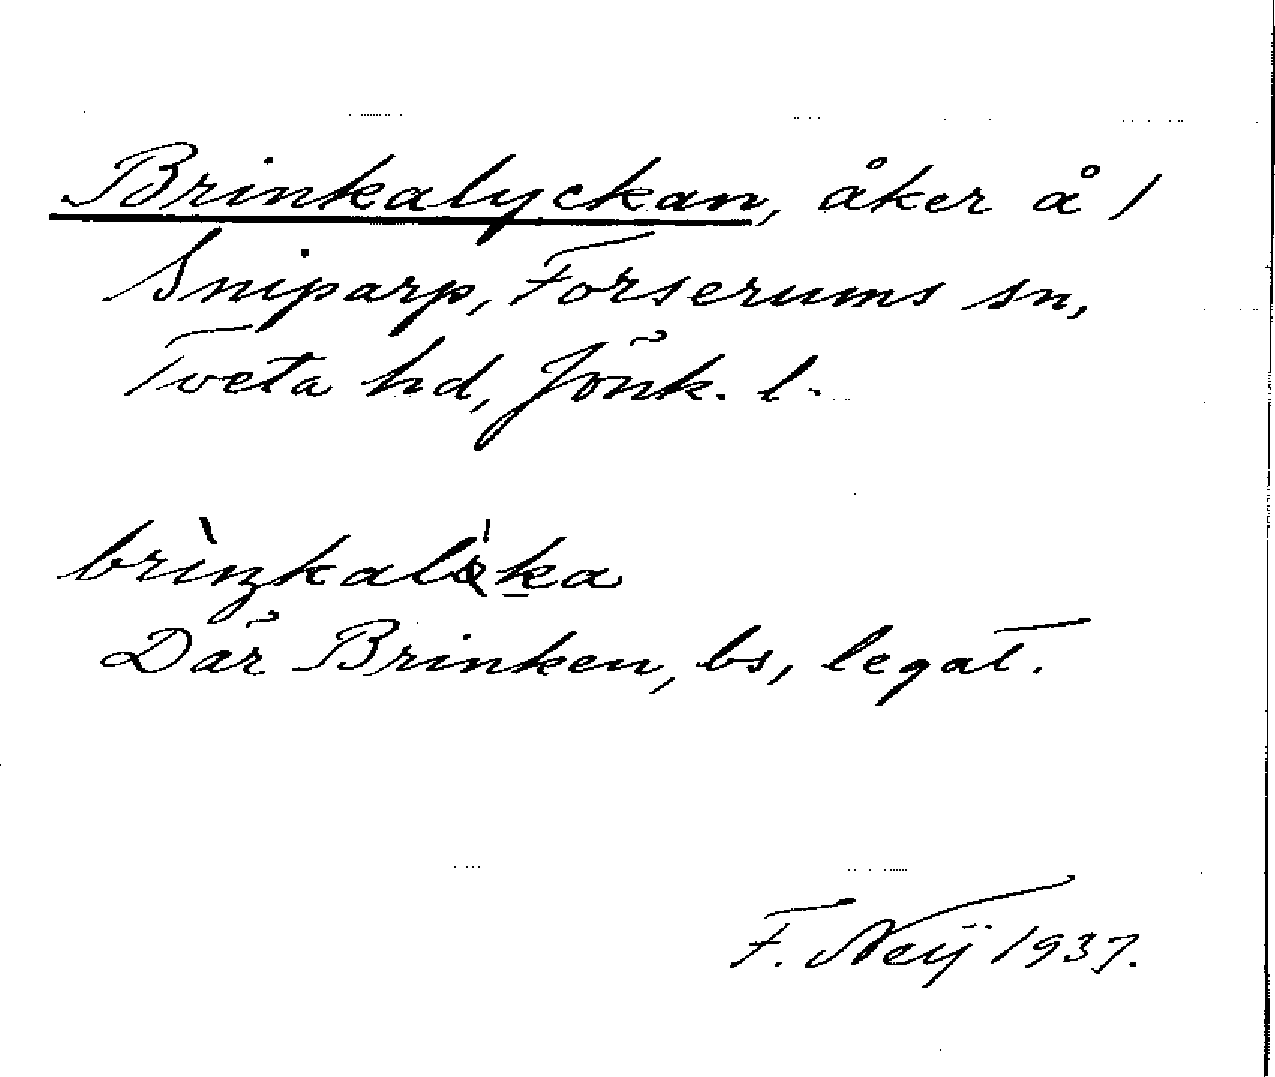 Brinkalyckan, åker å 1
Sniparp, Forserums sn,
Tveta hd, Jönk. l.
Där Brinken, bs, legat.
F. Neij 1937.